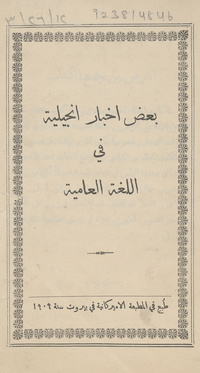 ٣/٤٦/١٤ 92381484b
بعض اخبار انجيلية
في
اللغة العامية
طُبع في المطبعة الاميركانية في بيروت سنة ١٩٠٩